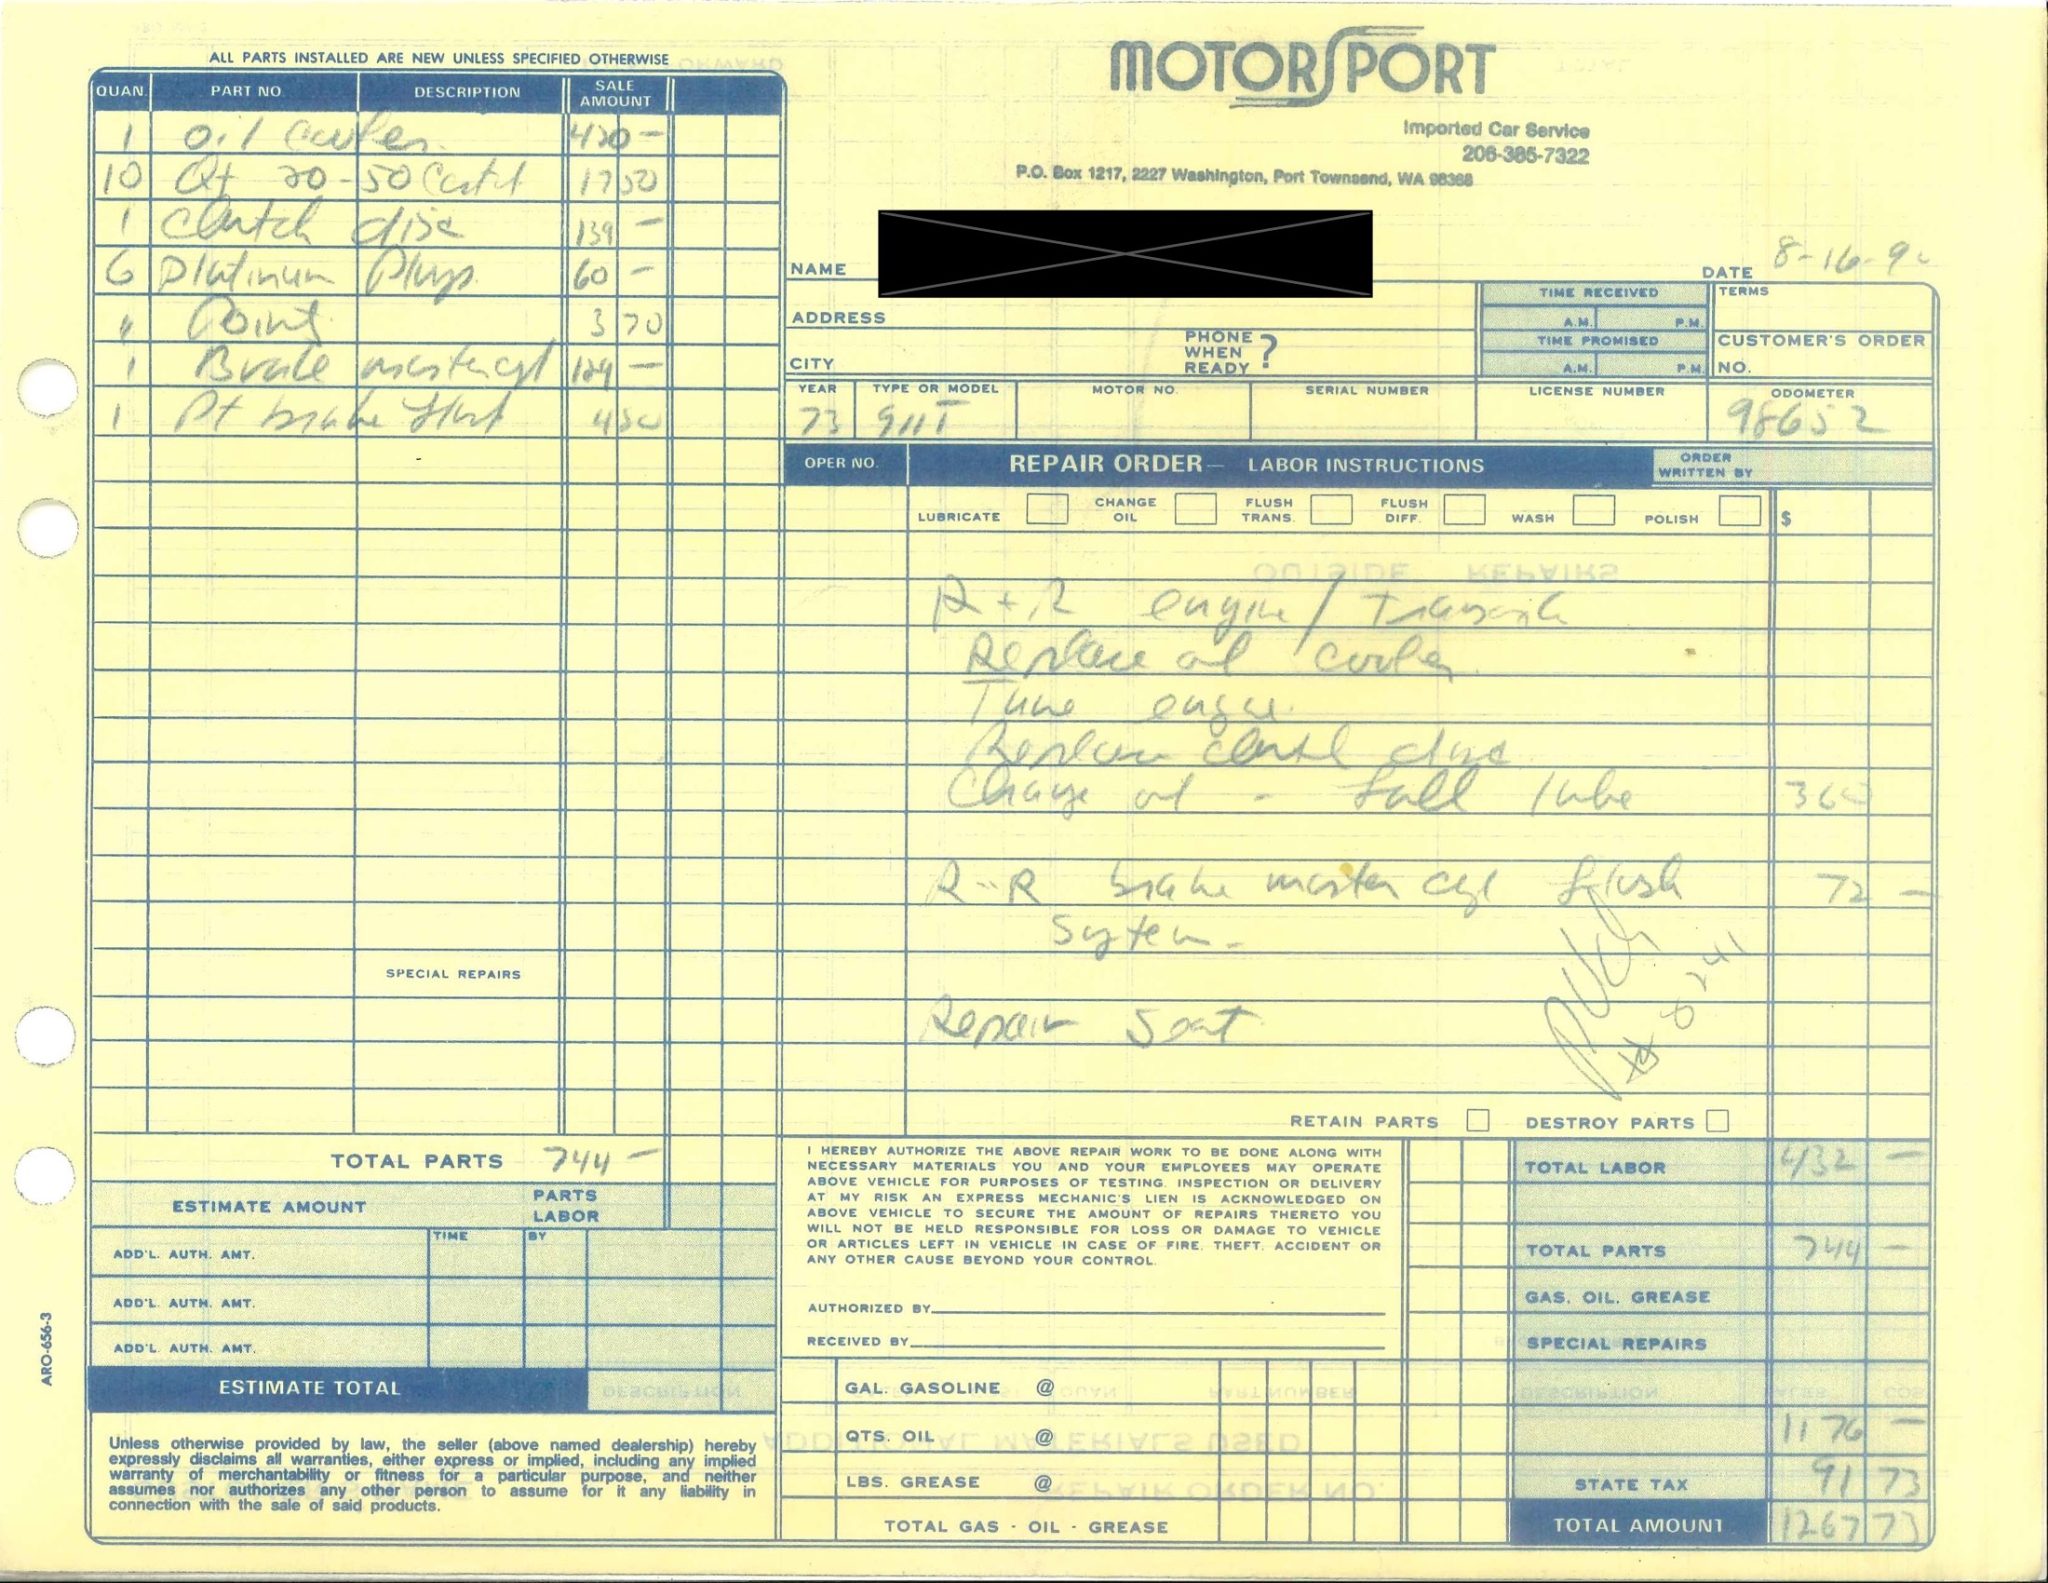 MOTORSPORT
Imported Car Service
206-385-7322
P.O. Box 1217, 2227 Washington, Port Townsend, WA 98368
ALL PARTS INSTALLED ARE NEW UNLESS SPECIFIED OTHERWISE
QUAN. PART NO. DESCRIPTION SALE AMOUNT
1 oil cooler 420 -
10 Qt 20-50 Castrl 17 50
1 Clutch disc 139 -
6 Platinum Plugs 60 -
" Points 3 70
1 Brake master cyl 129 -
1 Pt brake fluid 4 50
SPECIAL REPAIRS
TOTAL PARTS 744 -
ESTIMATE AMOUNT PARTS LABOR
TIME BY
ADD'L. AUTH. AMT.
ADD'L. AUTH. AMT.
ADD'L. AUTH. AMT.
ESTIMATE TOTAL
ARO-656-3
Unless otherwise provided by law, the seller (above named dealership) hereby
expressly disclaims all warranties, either express or implied, including any implied
warranty of merchantability or fitness for a particular purpose, and neither
assumes nor authorizes any other person to assume for it any liability in
connection with the sale of said products.
NAME DATE 8-16-9
ADDRESS TIME RECEIVED TERMS
A.M. P.M.
CITY PHONE WHEN READY ? TIME PROMISED CUSTOMER'S ORDER NO.
A.M. P.M.
YEAR TYPE OR MODEL MOTOR NO. SERIAL NUMBER LICENSE NUMBER ODOMETER
73 911T 98652
OPER NO. REPAIR ORDER — LABOR INSTRUCTIONS ORDER WRITTEN BY
LUBRICATE CHANGE OIL FLUSH TRANS. FLUSH DIFF. WASH POLISH $
R + R engine / Transaxle
Replace oil cooler
Tune engine
Replace clutch disc
Change oil - full lube 360
R-R brake master cyl flush 72 -
System -
Repair Seat
RETAIN PARTS DESTROY PARTS
I HEREBY AUTHORIZE THE ABOVE REPAIR WORK TO BE DONE ALONG WITH
NECESSARY MATERIALS YOU AND YOUR EMPLOYEES MAY OPERATE
ABOVE VEHICLE FOR PURPOSES OF TESTING. INSPECTION OR DELIVERY
AT MY RISK AN EXPRESS MECHANIC'S LIEN IS ACKNOWLEDGED ON
ABOVE VEHICLE TO SECURE THE AMOUNT OF REPAIRS THERETO YOU
WILL NOT BE HELD RESPONSIBLE FOR LOSS OR DAMAGE TO VEHICLE
OR ARTICLES LEFT IN VEHICLE IN CASE OF FIRE. THEFT. ACCIDENT OR
ANY OTHER CAUSE BEYOND YOUR CONTROL.
AUTHORIZED BY
RECEIVED BY
GAL. GASOLINE @
QTS. OIL @
LBS. GREASE @
TOTAL GAS - OIL - GREASE
TOTAL LABOR 432 -
TOTAL PARTS 744 -
GAS. OIL. GREASE
SPECIAL REPAIRS
1176 -
STATE TAX 91 73
TOTAL AMOUNT 1267 73